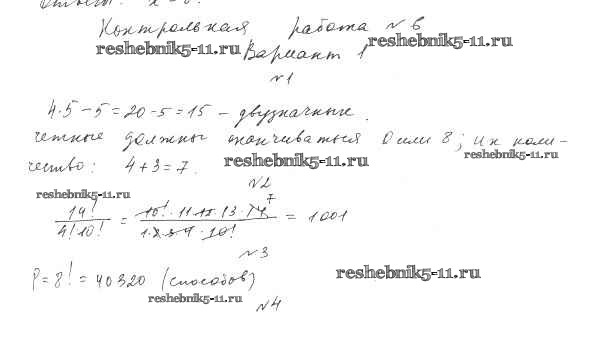 Ответ: x = 0.
Контрольная работа №6
reshebnik5-11.ru Вариант 1 reshebnik5-11.ru
№1
4·5 − 5 = 20 − 5 = 15 – двузначные.
четные должны оканчиваться 0 или 8; их коли-
reshebnik5-11.ru
чество: 4 + 3 = 7. reshebnik5-11.ru
reshebnik5-11.ru №2
14!/4!10! = 10!·11·12·13·14 7/1·2·3·4·10! = 1001
№3
P = 8! = 40320 (способов) reshebnik5-11.ru
reshebnik5-11.ru №4